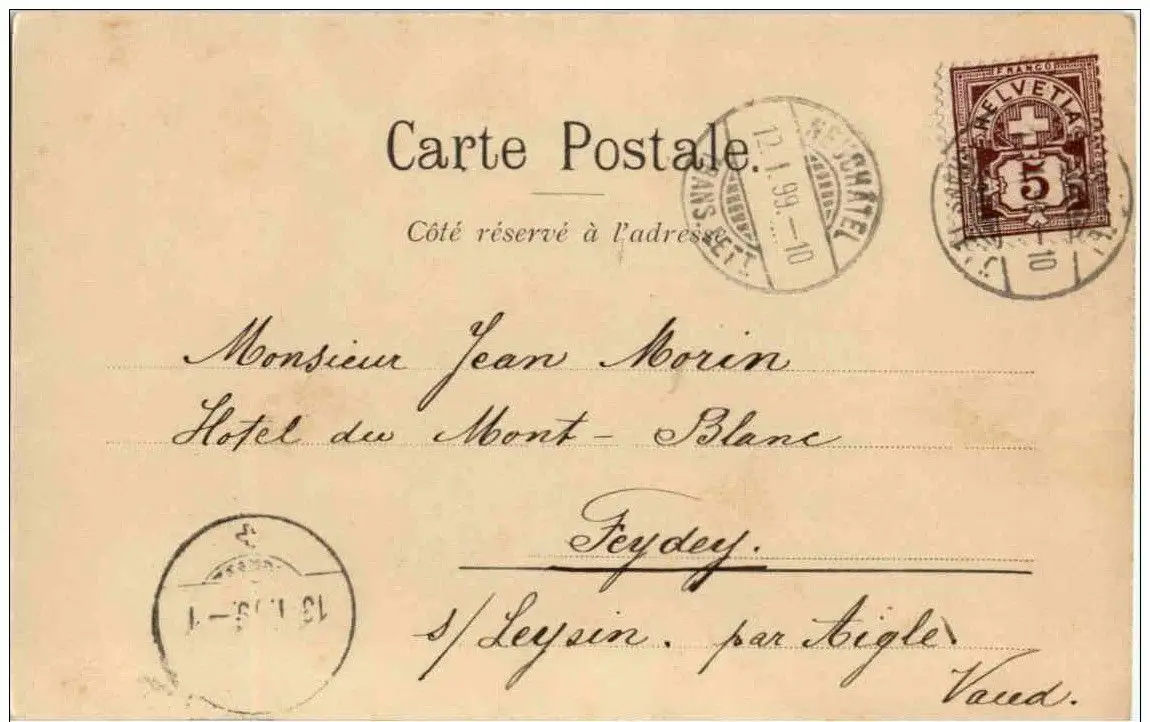 FRANCO
HELVETIA
5
Carte Postale.
NEUCHATEL
12.I.99.-10
TRANS.LETT.
-10
Côté réservé à l'adresse
Monsieur Jean Morin
Hotel du Mont-Blanc
Feydey.
s/ Leysin. par Aigle
Vaud.
13.I.99.-1